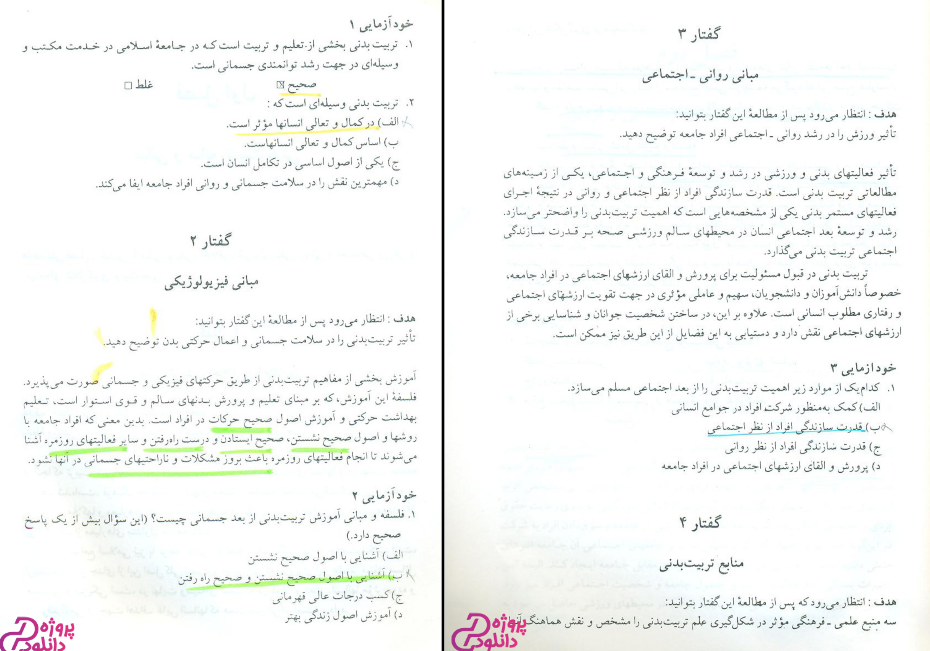 خودآزمایی ۱
۱. تربیت بدنی بخشی از تعلیم و تربیت است که در جامعهٔ اسلامی در خدمت مکتب و
وسیله‌ای در جهت رشد توانمندی جسمانی است.
صحیح ☒ غلط □
۲. تربیت بدنی وسیله‌ای است که :
الف) در کمال و تعالی انسانها مؤثر است.
ب) اساس کمال و تعالی انسانهاست.
ج) یکی از اصول اساسی در تکامل انسان است.
د) مهمترین نقش را در سلامت جسمانی و روانی افراد جامعه ایفا می‌کند.
گفتار ۲
مبانی فیزیولوژیکی
هدف : انتظار می‌رود پس از مطالعهٔ این گفتار بتوانید:
تأثیر تربیت‌بدنی را در سلامت جسمانی و اعمال حرکتی بدن توضیح دهید.
آموزش بخشی از مفاهیم تربیت‌بدنی از طریق حرکتهای فیزیکی و جسمانی صورت می‌پذیرد.
فلسفهٔ این آموزش، که بر مبنای تعلیم و پرورش بدنهای سالم و قوی استوار است، تعلیم
بهداشت حرکتی و آموزش اصول صحیح حرکات در افراد است. بدین معنی که افراد جامعه با
روشها و اصول صحیح نشستن، صحیح ایستادن و درست راه‌رفتن و سایر فعالیتهای روزمره آشنا
می‌شوند تا انجام فعالیتهای روزمره باعث بروز مشکلات و ناراحتیهای جسمانی در آنها نشود.
خودآزمایی ۲
۱. فلسفه و مبانی آموزش تربیت‌بدنی از بعد جسمانی چیست؟ (این سؤال بیش از یک پاسخ
صحیح دارد.)
الف) آشنایی با اصول صحیح نشستن
ب) آشنایی با اصول صحیح نشستن و صحیح راه رفتن
ج) کسب درجات عالی قهرمانی
د) آموزش اصول زندگی بهتر
پروژه
دانلود
گفتار ۳
مبانی روانی ـ اجتماعی
هدف : انتظار می‌رود پس از مطالعهٔ این گفتار بتوانید:
تأثیر ورزش را در رشد روانی ـ اجتماعی افراد جامعه توضیح دهید.
تأثیر فعالیتهای بدنی و ورزشی در رشد و توسعهٔ فرهنگی و اجتماعی، یکی از زمینه‌های
مطالعاتی تربیت بدنی است. قدرت سازندگی افراد از نظر اجتماعی و روانی در نتیجهٔ اجرای
فعالیتهای مستمر بدنی یکی از مشخصه‌هایی است که اهمیت تربیت‌بدنی را واضحتر می‌سازد.
رشد و توسعهٔ بعد اجتماعی انسان در محیطهای سالم ورزشی صحه بر قدرت سازندگی
اجتماعی تربیت بدنی می‌گذارد.
تربیت بدنی در قبول مسئولیت برای پرورش و القای ارزشهای اجتماعی در افراد جامعه،
خصوصاً دانش‌آموزان و دانشجویان، سهیم و عاملی مؤثری در جهت تقویت ارزشهای اجتماعی
و رفتاری مطلوب انسانی است. علاوه بر این، در ساختن شخصیت جوانان و شناسایی برخی از
ارزشهای اجتماعی نقش دارد و دستیابی به این فضایل از این طریق نیز ممکن است.
خودآزمایی ۳
۱. کدام‌یک از موارد زیر اهمیت تربیت‌بدنی را از بعد اجتماعی مسلم می‌سازد.
الف) کمک به‌منظور شرکت افراد در جوامع انسانی
ب) قدرت سازندگی افراد از نظر اجتماعی
ج) قدرت سازندگی افراد از نظر روانی
د) پرورش و القای ارزشهای اجتماعی در افراد جامعه
گفتار ۴
منابع تربیت‌بدنی
هدف : انتظار می‌رود که پس از مطالعهٔ این گفتار بتوانید:
سه منبع علمی ـ فرهنگی مؤثر در شکل‌گیری علم تربیت‌بدنی را مشخص و نقش هماهنگی
پروژه
دانلود